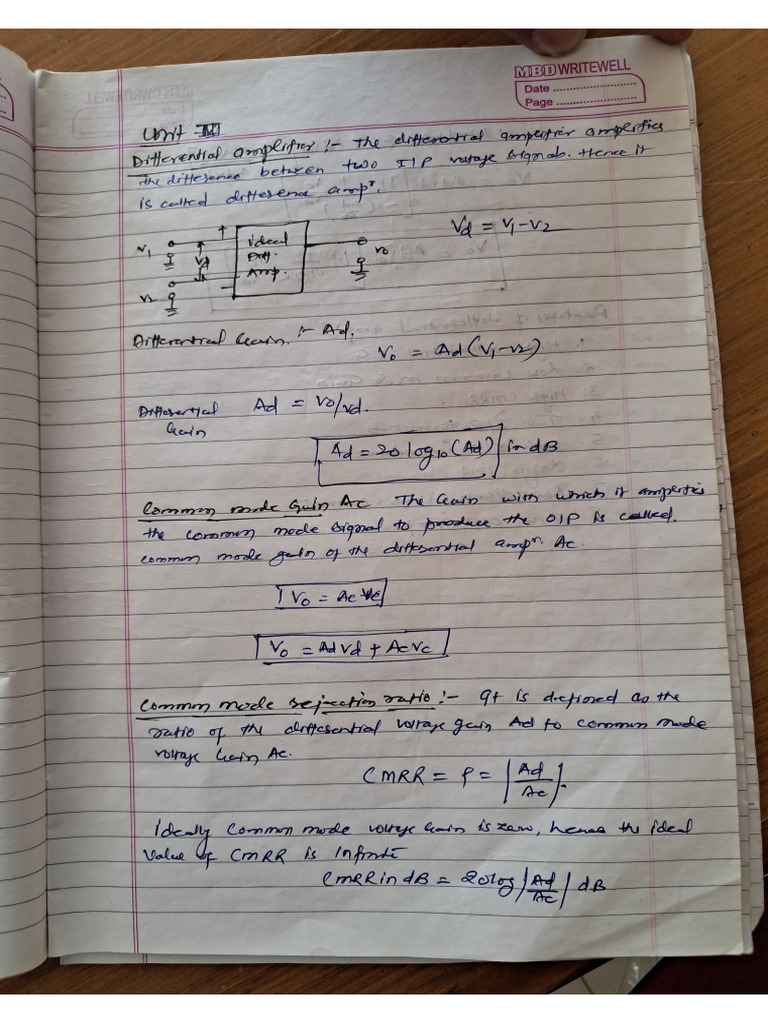 MBD WRITEWELL
Date ....................
Page ....................
Unit - III
Differential amplifier :- The differential amplifier amplifies
the difference between two I/P voltage signals. Hence it
is called difference ampr.
Vd = V1 - V2
V1
Vd
V2
ideal
Diff.
Amp.
Vo
Differential Gain :- Ad.
Vo = Ad (V1 - V2)
Differential Gain
Ad = Vo/Vd.
Ad = 20 log10 (Ad) in dB
Common mode gain Ac The Gain with which it amplifies
the common mode signal to produce the O/P is called
common mode gain of the differential ampr. Ac.
Vo = Ac Vc
Vo = Ad Vd + Ac Vc
Common mode rejection ratio :- It is defined as the
ratio of the differential voltage gain Ad to common mode
voltage Gain Ac.
CMRR = ρ = |Ad/Ac|.
Ideally common mode voltage Gain is zero, hence the ideal
value of CMRR is infinite
CMRR in dB = 20 log |Ad/Ac| dB